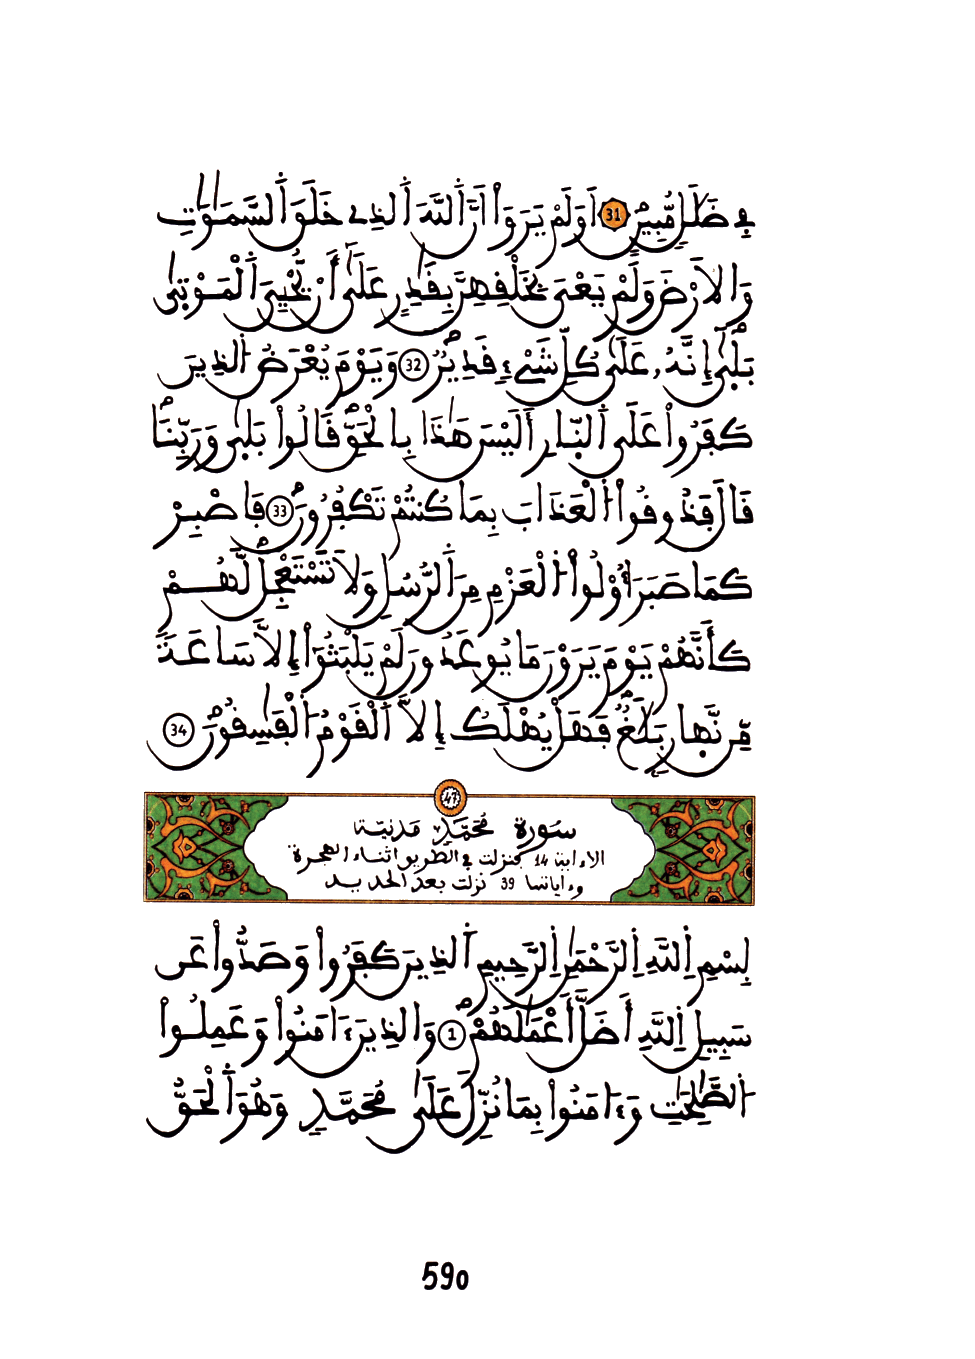 فِي ضَلَٰلٍ مُّبِينٍ 31 اَوَلَمْ يَرَوَاْ اَنَّ اَللَّهَ اَلذِے خَلَقَ اَلسَّمَٰوَٰتِ
وَالَارْضَ وَلَمْ يَعْيَ بِخَلْقِهِنَّ بِقَٰدِرٍ عَلَىٰٓ أَنْ يُّحْۓِيَ اَلْمَوْتَىٰ
بَلَىٰٓ إِنَّهُۥ عَلَىٰ كُلِّ شَےْءٍ قَدِيرٌ 32 وَيَوْمَ يُعْرَضُ اُلذِينَ
كَفَرُواْ عَلَى اَلنَّارِ أَلَيْسَ هَٰذَا بِالْحَقِّ قَالُواْ بَلَىٰ وَرَبِّنَا
قَالَ فَذُوقُواْ اُلْعَذَابَ بِمَا كُنتُمْ تَكْفُرُونَ 33 فَاصْبِرْ
كَمَا صَبَرَ أُوْلُواْ اُلْعَزْمِ مِنَ اَلرُّسُلِ وَلَا تَسْتَعْجِل لَّهُمْ
كَأَنَّهُمْ يَوْمَ يَرَوْنَ مَا يُوعَدُونَ لَمْ يَلْبَثُوٓاْ إِلَّا سَاعَةً
مِّن نَّهارٍ بَلَٰغٌ فَهَلْ يُهْلَكُ إِلَّا اَلْقَوْمُ اُلْفَٰسِقُونَ 34
47
سُورَة مُحَمَّد مَدنيَّة
الا ءاية 14 فنزلت في الطريق اثناء الهجرة
وءاياتها 39 نزلت بعد الحديد
بِسْمِ اِللَّهِ اِلرَّحْمَٰنِ اِلرَّحِيمِ اَلذِينَ كَفَرُواْ وَصَدُّواْ عَن
سَبِيلِ اِللَّهِ أَضَلَّ أَعْمَٰلَهُمْ 1 وَالذِينَ ءَامَنُواْ وَعَمِلُواْ
اُلصَّٰلِحَٰتِ وَءَامَنُواْ بِمَا نُزِّلَ عَلَىٰ مُحَمَّدٍ وَهُوَ اَلْحَقُّ
590